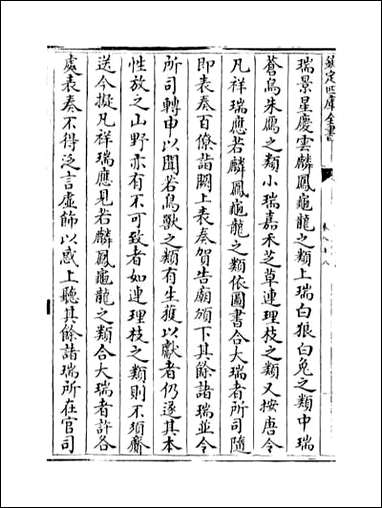 欽定四庫全書
瑞景星慶雲麟鳳龜龍之類上瑞白狼白兔之類中瑞
蒼烏朱鴈之類小瑞嘉禾芝草連理枝之類又按唐令
凡祥瑞應若麟鳳龜龍之類依圖書合大瑞者所司隨
即表奏百僚詣闕上表奏賀告廟頒下其餘諸瑞並令
所司轉申以聞若鳥獸之類有生獲以獻者仍遂其本
性放之山野亦有不可致者如連理枝之類則不須齎
送今擬凡祥瑞應見若麟鳳龜龍之類合大瑞者許各
處表奏不得泛言虛飾以惑上聽其餘諸瑞所在官司